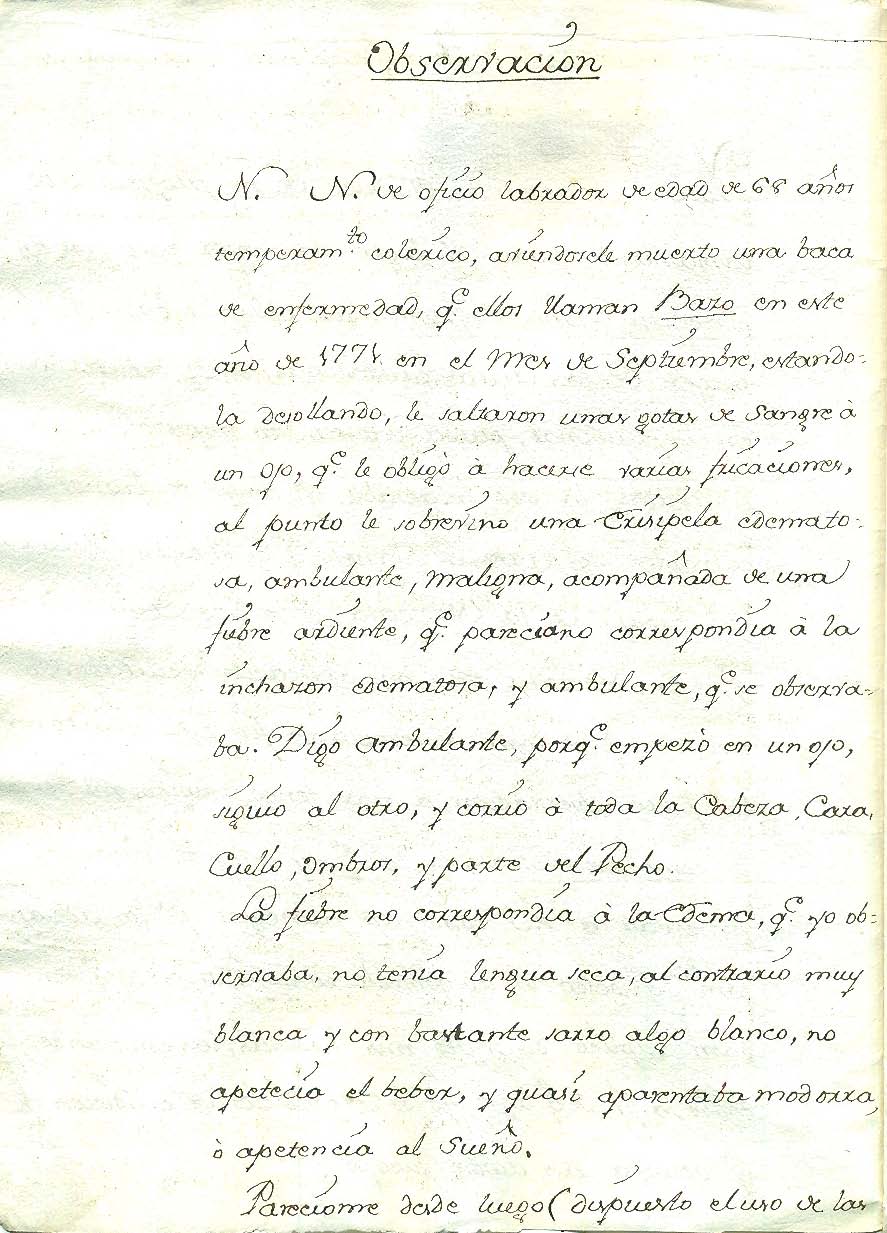 Observacion
N. N. de oficio labrador de edad de 68 años
temperam.to colerico, aviendosele muerto una baca
de enfermedad, q.e ellos llaman Bazo en este
año de 1771 en el Mes de Septiembre, estando=
la desollando, le saltaron unas gotas de Sangre à
un ojo, q.e le obligò à hacerse varias fricaciones,
al punto le sobrevino una Erisipela edemato=
sa, ambulante, maligna, acompañada de una
fiebre ardiente, q.e parecia no correspondia à la
inchazon edematosa, y ambulante, q.e se observa=
ba. Digo ambulante, porq.e empezò en un ojo,
siguio al otro, y corrio à toda la Cabeza, Cara,
Cuello, ombros, y parte del Pecho.
La fiebre no correspondia à la Edema, q.e yo ob=
servaba, no tenia lengua seca, al contrario muy
blanca y con bastante sarro algo blanco, no
apetecia el beber, y quasi aparentaba modorra,
ò apetencia al Sueño.
Pareciome desde luego (dispuesto el uso de las